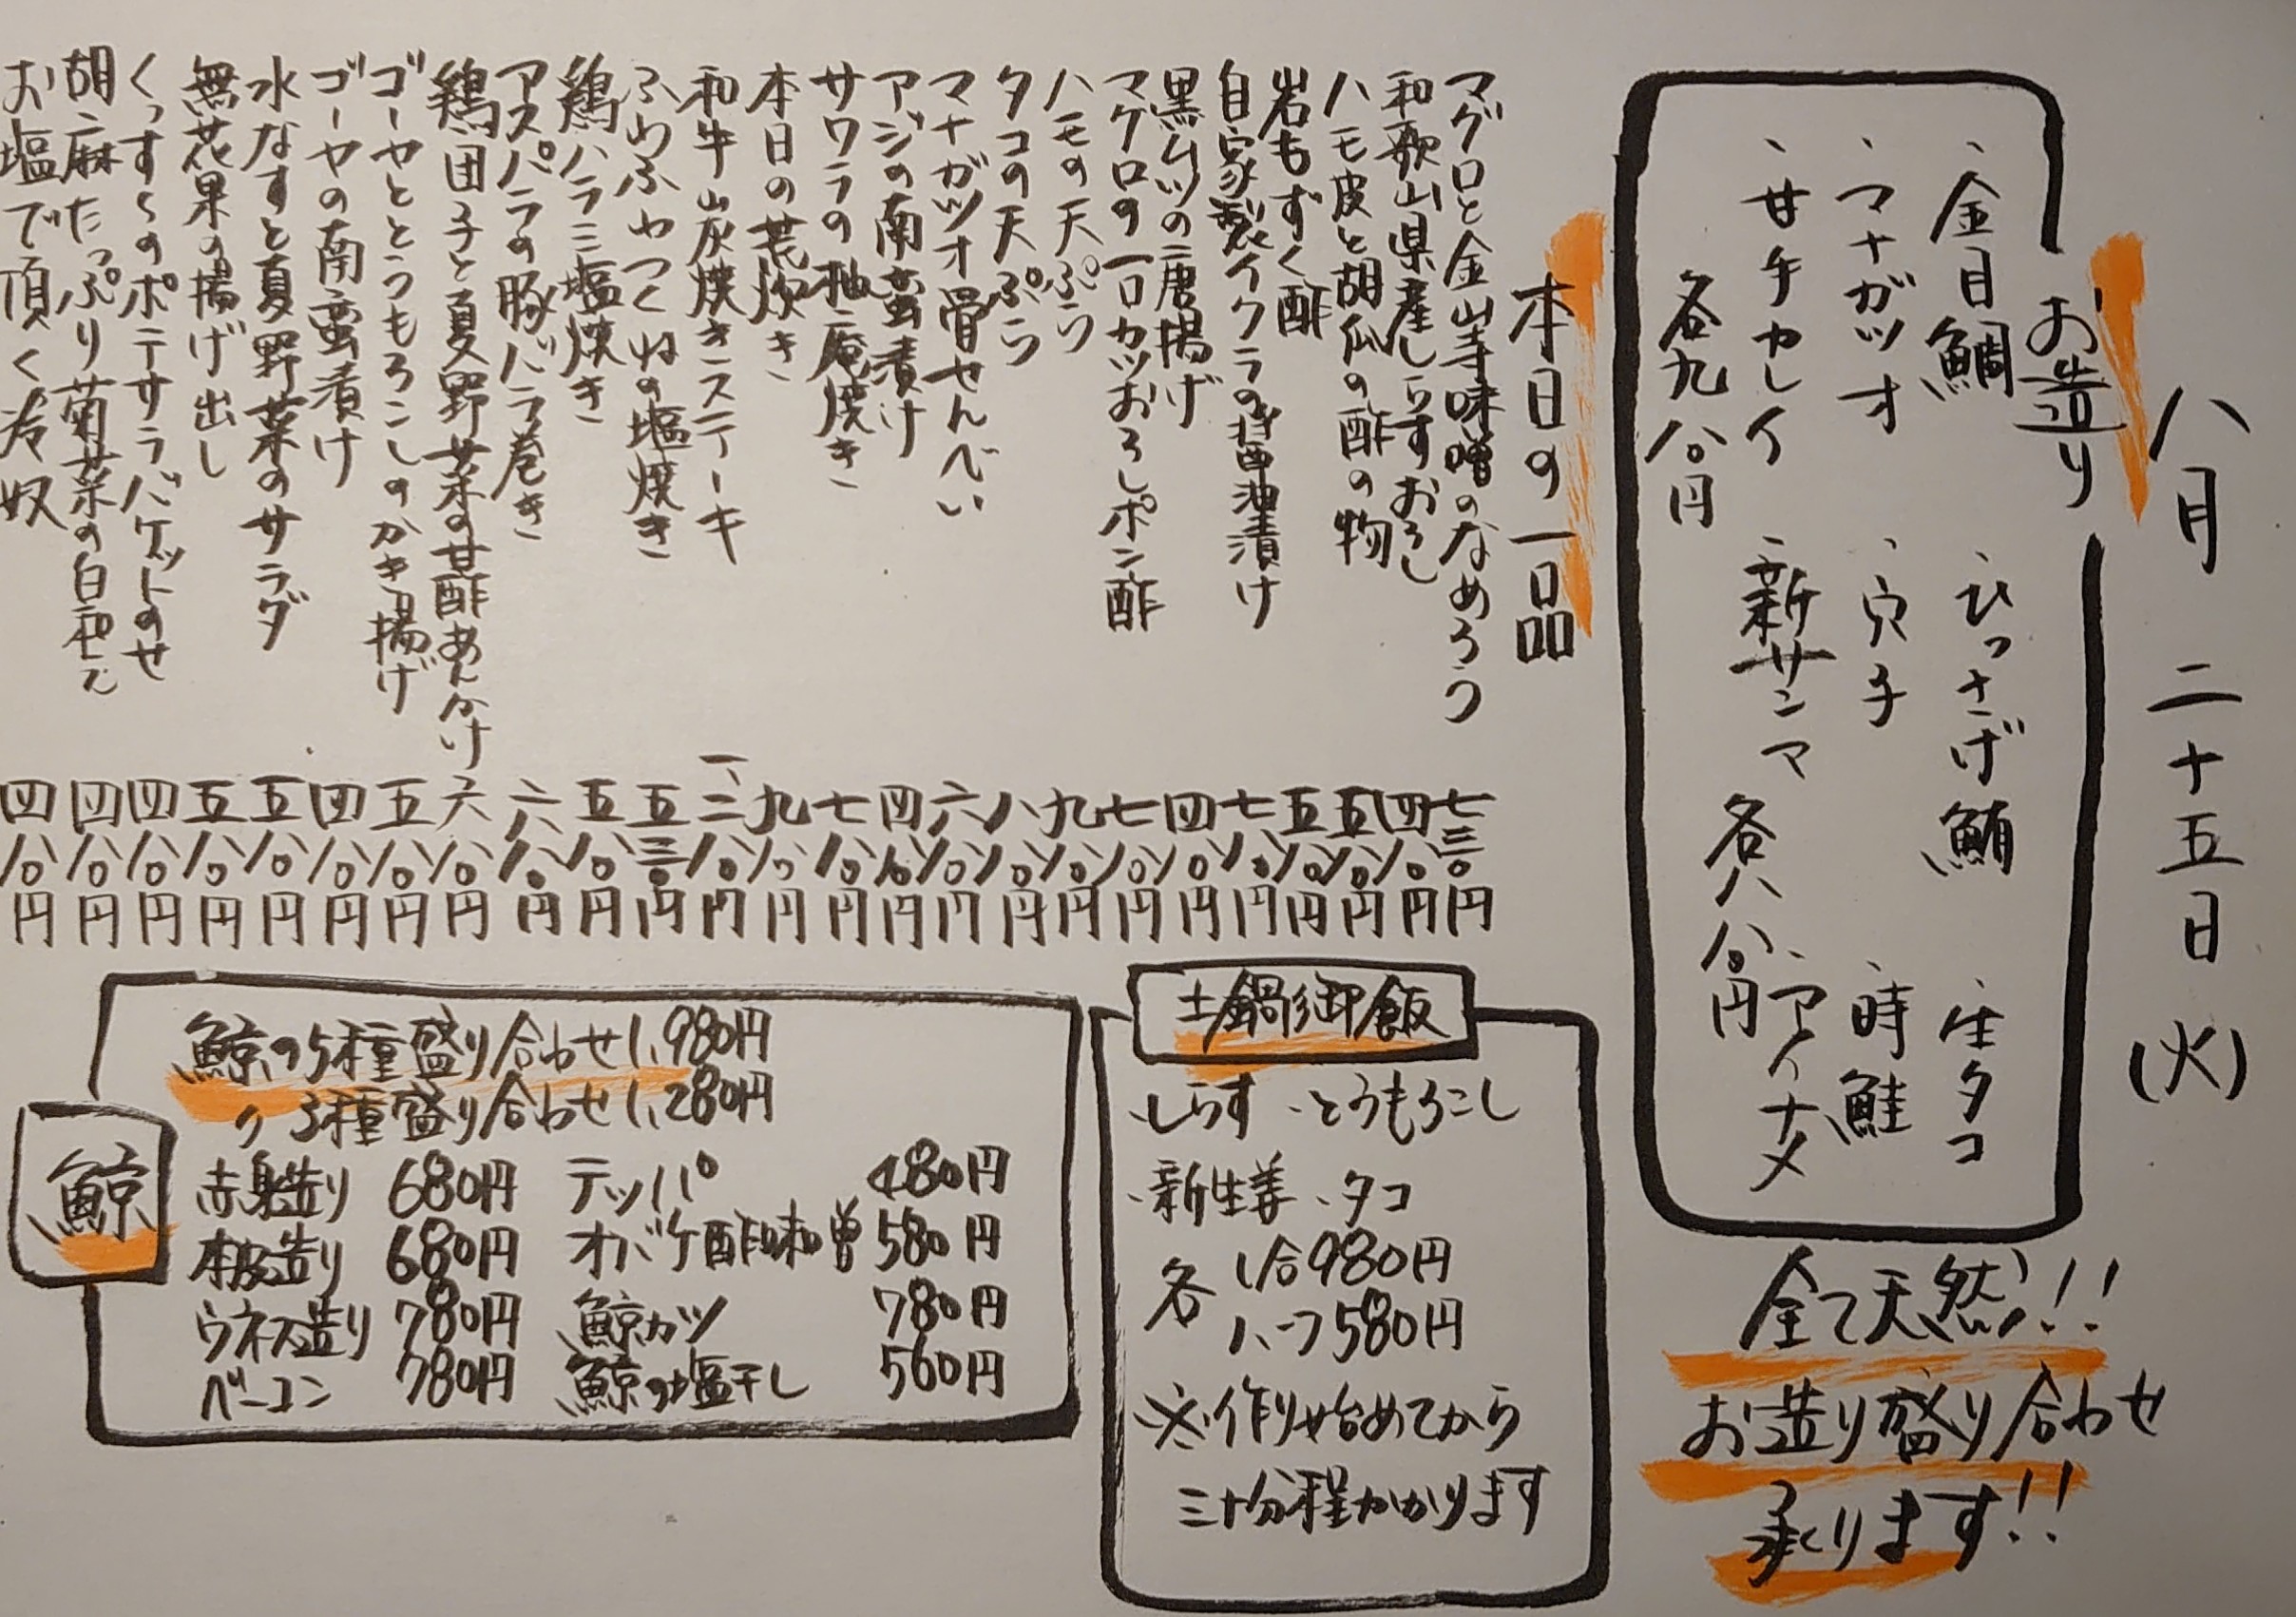 八月二十五日(火)
お造り
、金目鯛 、ひっさげ鮪 、生タコ
、マナガツオ 、穴子 、時鮭
、サチカレイ 、新サンマ 、アイナメ
各九八〇円 各八八〇円
全て天然!!
お造り盛り合わせ
承ります!!
本日の一品
マグロと金山寺味噌のなめろう 七三〇円
和歌山県産しらすおろし 四八〇円
ハモ皮と胡瓜の酢の物 五八〇円
岩もずく酢 五八〇円
自家製イクラの醤油漬け 七八〇円
黒ムツの唐揚げ 四八〇円
マグロの一口カツおろしポン酢 七八〇円
ハモの天ぷら 九八〇円
タコの天ぷら 八八〇円
マナガツオ骨せんべい 六八〇円
アジの南蛮漬け 四八〇円
サワラの柚庵焼き 七八〇円
本日の荒炊き 九八〇円
和牛炭焼きステーキ 一、二八〇円
ふわふわつくねの塩焼き 五三〇円
鶏ハラミ塩焼き 五八〇円
アスパラの豚バラ巻き 六八〇円
鶏団子と夏野菜の甘酢あんかけ 六八〇円
ゴーヤととうもろこしのかき揚げ 五八〇円
ゴーヤの南蛮漬け 四八〇円
水なすと夏野菜のサラダ 五八〇円
無花果の揚げ出し 五八〇円
くっすぅのポテサラバケットのせ 四八〇円
胡麻たっぷり菊菜の白和え 四八〇円
お塩で頂く冷奴 四八〇円
土鍋御飯
、しらす 、とうもろこし
、新生姜 、タコ
各 1合980円
ハーフ580円
※作り始めてから
三十分程かかります
鯨
鯨の5種盛り合わせ1,980円
〃 3種盛り合わせ1,280円
赤身造り 680円 テッパ 480円
本皮造り 680円 オバケ酢味噌 580円
ウネス造り 780円 鯨カツ 780円
ベーコン 780円 鯨の塩干し 560円